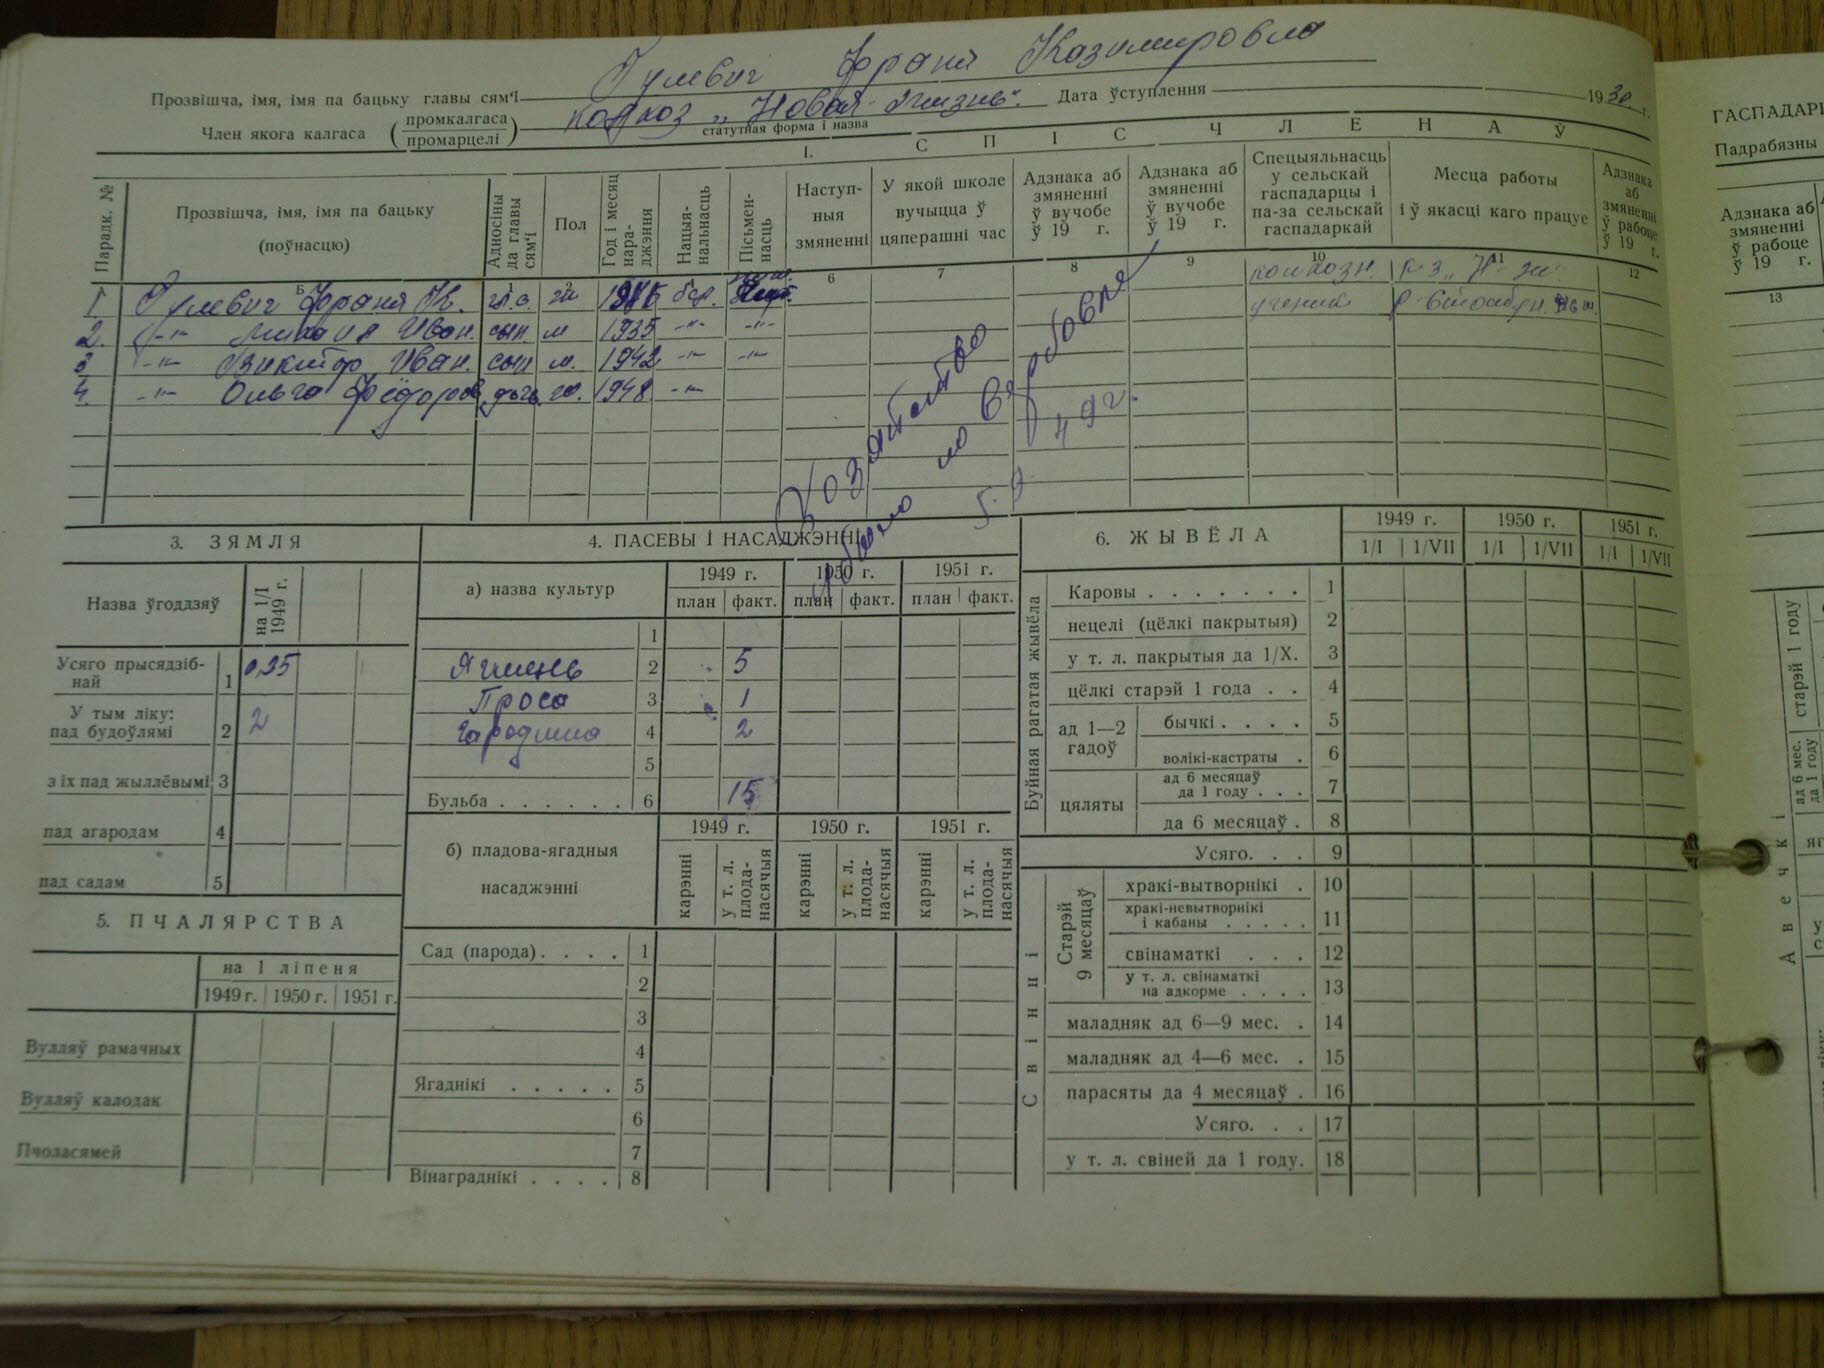 Гулевич Франя Казимировна
Прозвішча, імя, імя па бацьку главы сям'і
Член якога калгаса (промкалгаса промарцелі) колхоз „Новая жизнь".
статутная форма і назва
Дата ўступлення 1930 г.
І. СПІС ЧЛЕНАЎ
Парадк. №
Прозвішча, імя, імя па бацьку (поўнасцю)
Адносіны да главы сям'і
Пол
Год і месяц нараджэння
Нацыянальнасць
Пісьменнасць
Наступныя змяненні
У якой школе вучыцца ў цяперашні час
Адзнака аб змяненні ў вучобе ў 19 г.
Адзнака аб змяненні ў вучобе ў 19 г.
Спецыяльнасць у сельскай гаспадарцы і па-за сельскай гаспадаркай
Месца работы і ў якасці каго працуе
Адзнака аб змяненні ў рабоце ў 19 г.
Б 1 2 6 7 8 9 10 11 12
1. Гулевич Франя К. гл.с. ж бел. колхозн. к-з „Н-ж"
2. -"- Михаил Иван. сын м 1935 -"- -"- ученик
3 -"- Виктор Иван. сын м. 1942 -"- -"-
4. -"- Ольга Фёдоров. дочь ж. 1948 -"-
Хозяйство
5.9 49 г.
3. ЗЯМЛЯ
Назва ўгоддзяў
на 1/I 1949 г.
Усяго прысядзібнай 1 0,25
У тым ліку: пад будоўлямі 2 2
з іх пад жыллёвымі 3
пад агародам 4
пад садам 5
5. ПЧАЛЯРСТВА
на 1 ліпеня
1949 г. 1950 г. 1951 г.
Вулляў рамачных
Вулляў калодак
Пчоласямей
4. ПАСЕВЫ І НАСАДЖЭННІ
а) назва культур
1949 г. 1950 г. 1951 г.
план факт. план факт. план факт.
1
Ячмень 2 5
Проса 3 1
Гародніна 4 2
5
Бульба . . . . . . 6 15
б) пладова-ягадныя насаджэнні
1949 г. 1950 г. 1951 г.
карэнні у т. л. плоданасячыя карэнні у т. л. плоданасячыя карэнні у т. л. плоданасячыя
Сад (парода). . . . 1
2
3
4
Ягаднікі . . . . . 5
6
7
Вінаграднікі . . . . 8
6. ЖЫВЁЛА
1949 г. 1950 г. 1951 г.
1/I 1/VII 1/I 1/VII 1/I 1/VII
Буйная рагатая жывёла
Каровы . . . . . . . 1
нецелі (цёлкі пакрытыя) 2
у т. л. пакрытыя да 1/X. 3
цёлкі старэй 1 года . . 4
ад 1—2 гадоў
бычкі . . . . 5
волікі-кастраты . 6
цяляты
ад 6 месяцаў да 1 году . . . 7
да 6 месяцаў . 8
Усяго. . . 9
Свінні
Старэй 9 месяцаў
хракі-вытворнікі . 10
хракі-невытворнікі і кабаны . . . . . 11
свінаматкі . . . 12
у т. л. свінаматкі на адкорме . . . . 13
маладняк ад 6—9 мес. . 14
маладняк ад 4—6 мес. . 15
парасяты да 4 месяцаў . 16
Усяго. . . 17
у т. л. свіней да 1 году. 18
ГАСПАДАР
Падрабязны
Адзнака аб змяненні ў рабоце ў 19 г.
13
Авечкі
старэй 1 году
ад 6 мес. да 1 году